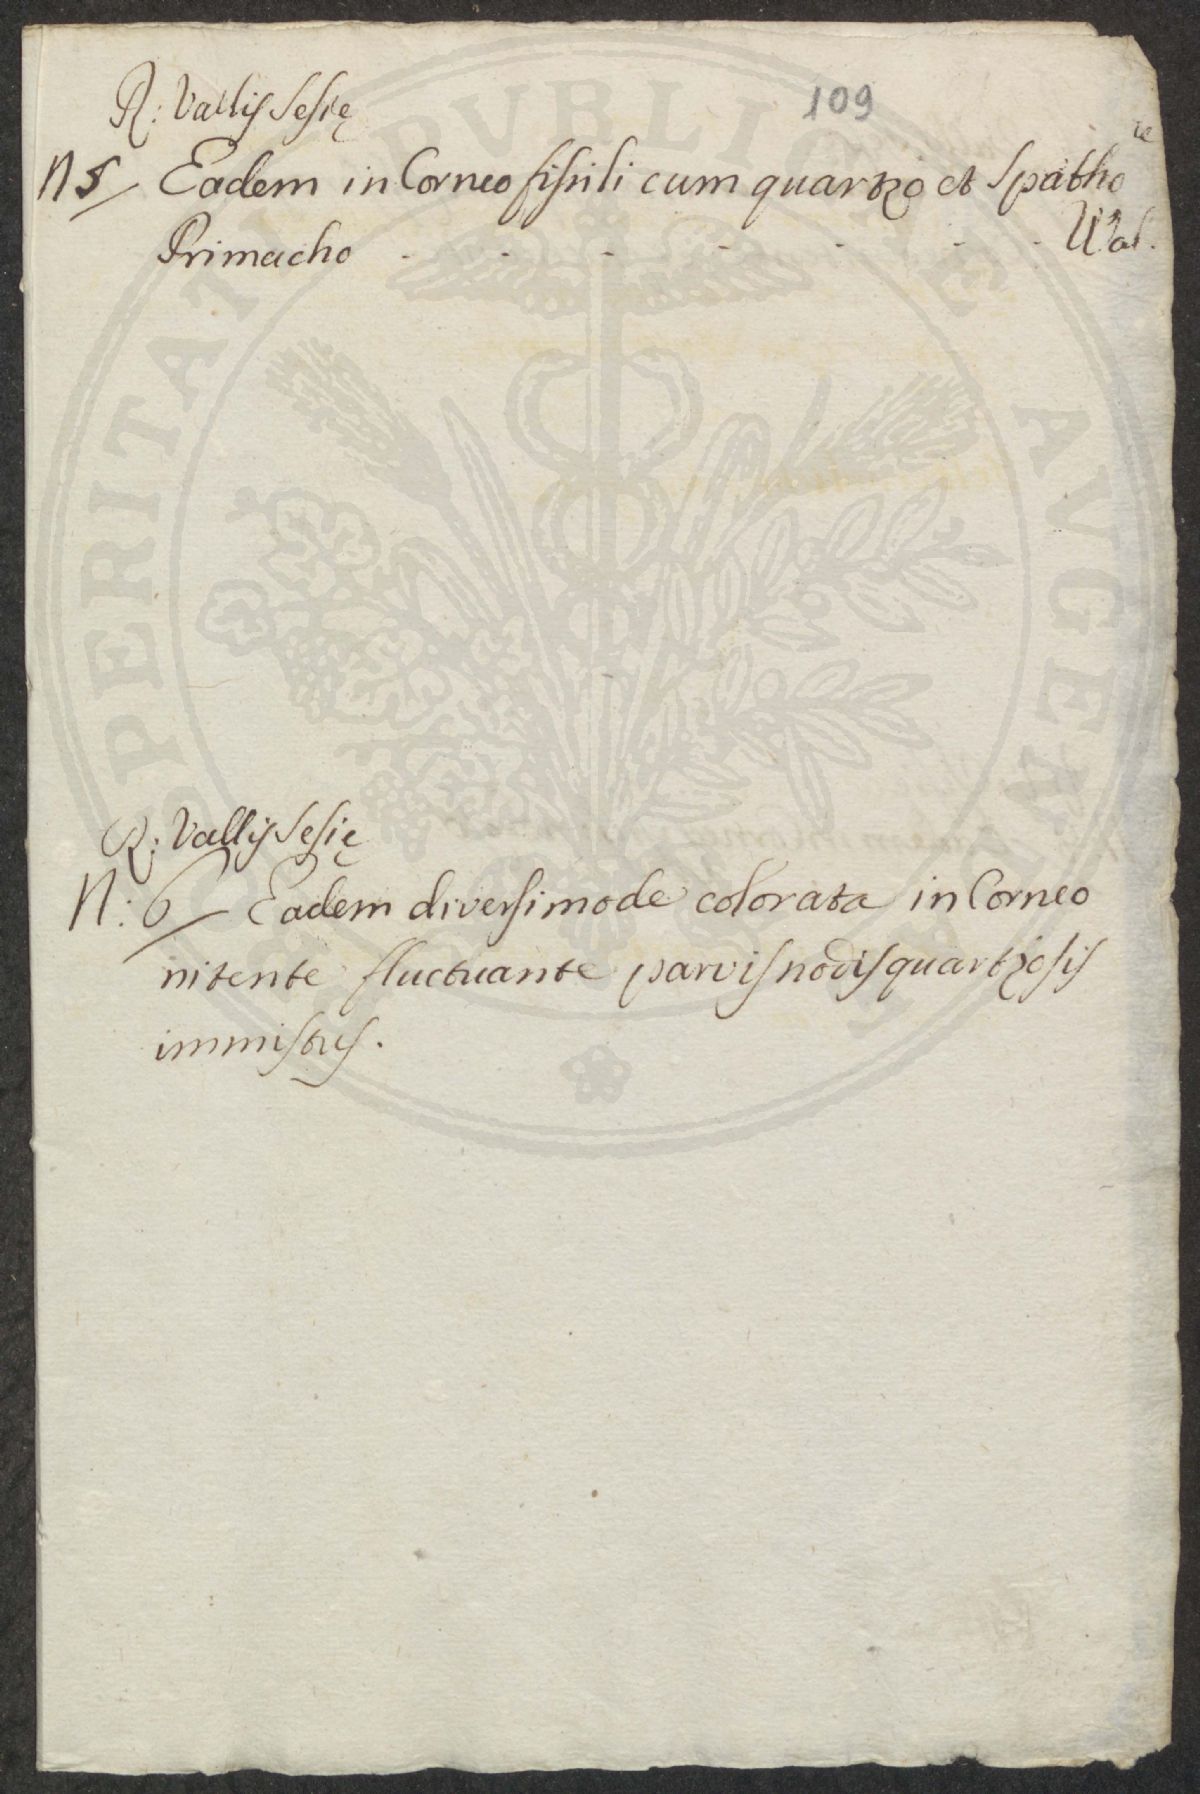 109
R: Vallis Sesię
N 5 Eadem in Corneo fissili cum quartzo et Spatho
Primacho . . . . . . Wal.
R: Vallis Sesię
N: 6 Eadem diversimode colorata in Corneo
nitente fluctuante parvis nodis quartzosis
immistis.